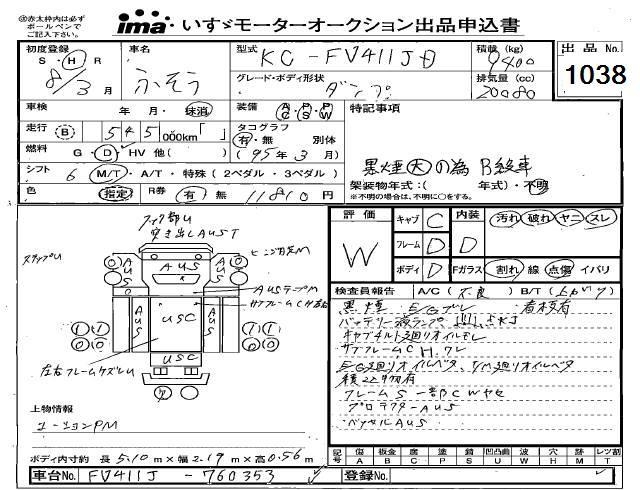 ㊟赤太枠内は必ず
ボールペンで
ご記入下さい。
ima いすゞモーターオークション出品申込書
初度登録 S・H・R 8/3月
車名 ふそう
型式 KC-FV411JD
積載(kg) 9400
出品No. 1038
グレード・ボディ形状 ダンプ
排気量(cc) 20080
車検 年 月・抹消
装備 A/C P/S P/W
特記事項
走行 B 545,000km「 」
タコグラフ 有・無 別体
燃料 G・D・HV 他( )
(95年3月)
黒煙大の為 B級車
シフト 6 M/T・A/T・特殊(2ペダル・3ペダル)
架装物年式:( 年式)・不明
※不明の場合は、不明に○をする。
色 指定 R券 有 無 11810円
評価 W
キャブ C
フレーム D
ボディ D
内装 D
Fガラス
汚れ・破れ・ヤニ・スレ
割れ 線 点傷・イバリ
検査員報告 A/C(不良) B/T(上がり)
黒煙 E/Gブレ 看板有
バッテリー液ランプ
キャブチルト廻りオイルモレ
サブフレームCH.ワレ
E/G廻りオイルベタ、T/M廻りオイルベタ
積込物有
フレームS 一部CWヤセ
プロテクターAUS
ベッセルAUS
フック部U
突き出しAUST
ステップU
AUS
AUS
AUS
AUSテープM
サブフレームCH左右
AUS
USC
AUS
USC
左右フレームケズレU
上物情報
ボディ内寸約 長5.10m×幅2.19m×高0.56m
記号 傷 板金 腐 塗 錆 凹凸曲 波 穴 跡 レツ割
A B C P S U W H M T
車台No. FV411J-760353
登録No.